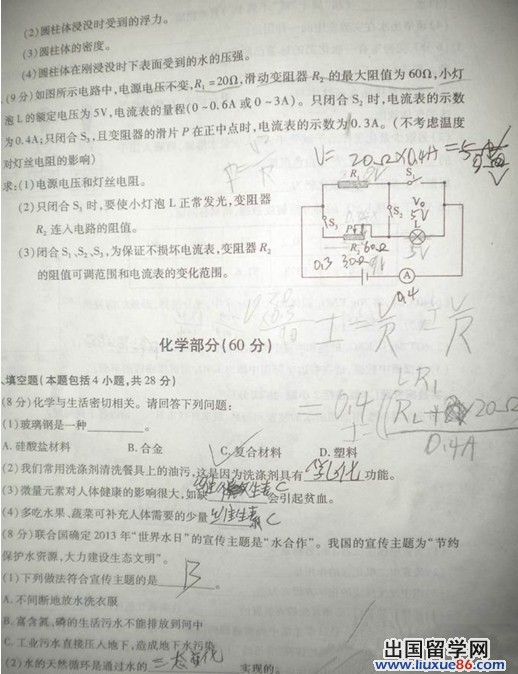 (2)圆柱体浸没时受到的浮力。
(3)圆柱体的密度。
(4)圆柱体在刚浸没时下表面受到的水的压强。
(9分)如图所示电路中,电源电压不变,R₁=20Ω,滑动变阻器R₂的最大阻值为60Ω,小灯
泡L的额定电压为5V,电流表的量程(0~0.6A或0~3A)。只闭合S₂时,电流表的示数
为0.4A;只闭合S₃,且变阻器的滑片P在正中点时,电流表的示数为0.3A。(不考虑温度
对灯丝电阻的影响)
V= 20Ω×0.4A
求:(1)电源电压和灯丝电阻。
(2)只闭合S₃时,要使小灯泡L正常发光,变阻器
R₂连入电路的阻值。
(3)闭合S₁、S₂、S₃,为保证不损坏电流表,变阻器R₂
的阻值可调范围和电流表的变化范围。
R₁ S₁
S₃ S₂ L 5V
P R₂ 60Ω
0.3 30Ω
A
0.4
I=V/R
化学部分(60分)
填空题(本题包括4小题,共28分)
(8分)化学与生活密切相关。请回答下列问题:
(1)玻璃钢是一种______。
A. 硅酸盐材料 B. 合金 C. 复合材料 D. 塑料
(2)我们常用洗涤剂清洗餐具上的油污,这是因为洗涤剂具有 乳化 功能。
(3)微量元素对人体健康的影响很大,如缺 会引起贫血。
(4)多吃水果、蔬菜可补充人体需要的少量 维生素C
= 0.4
20Ω
0.4A
(8分)联合国确定2013年“世界水日”的宣传主题是“水合作”。我国的宣传主题为“节约
保护水资源,大力建设生态文明”。
(1)下列做法符合宣传主题的是 B 。
A. 不间断地放水洗衣服
B. 富含氮、磷的生活污水不能排放到河中
C. 工业污水直接压入地下,造成地下水污染
(2)水的天然循环是通过水的 三态变化 实现的。
出国留学网
www.liuxue86.com